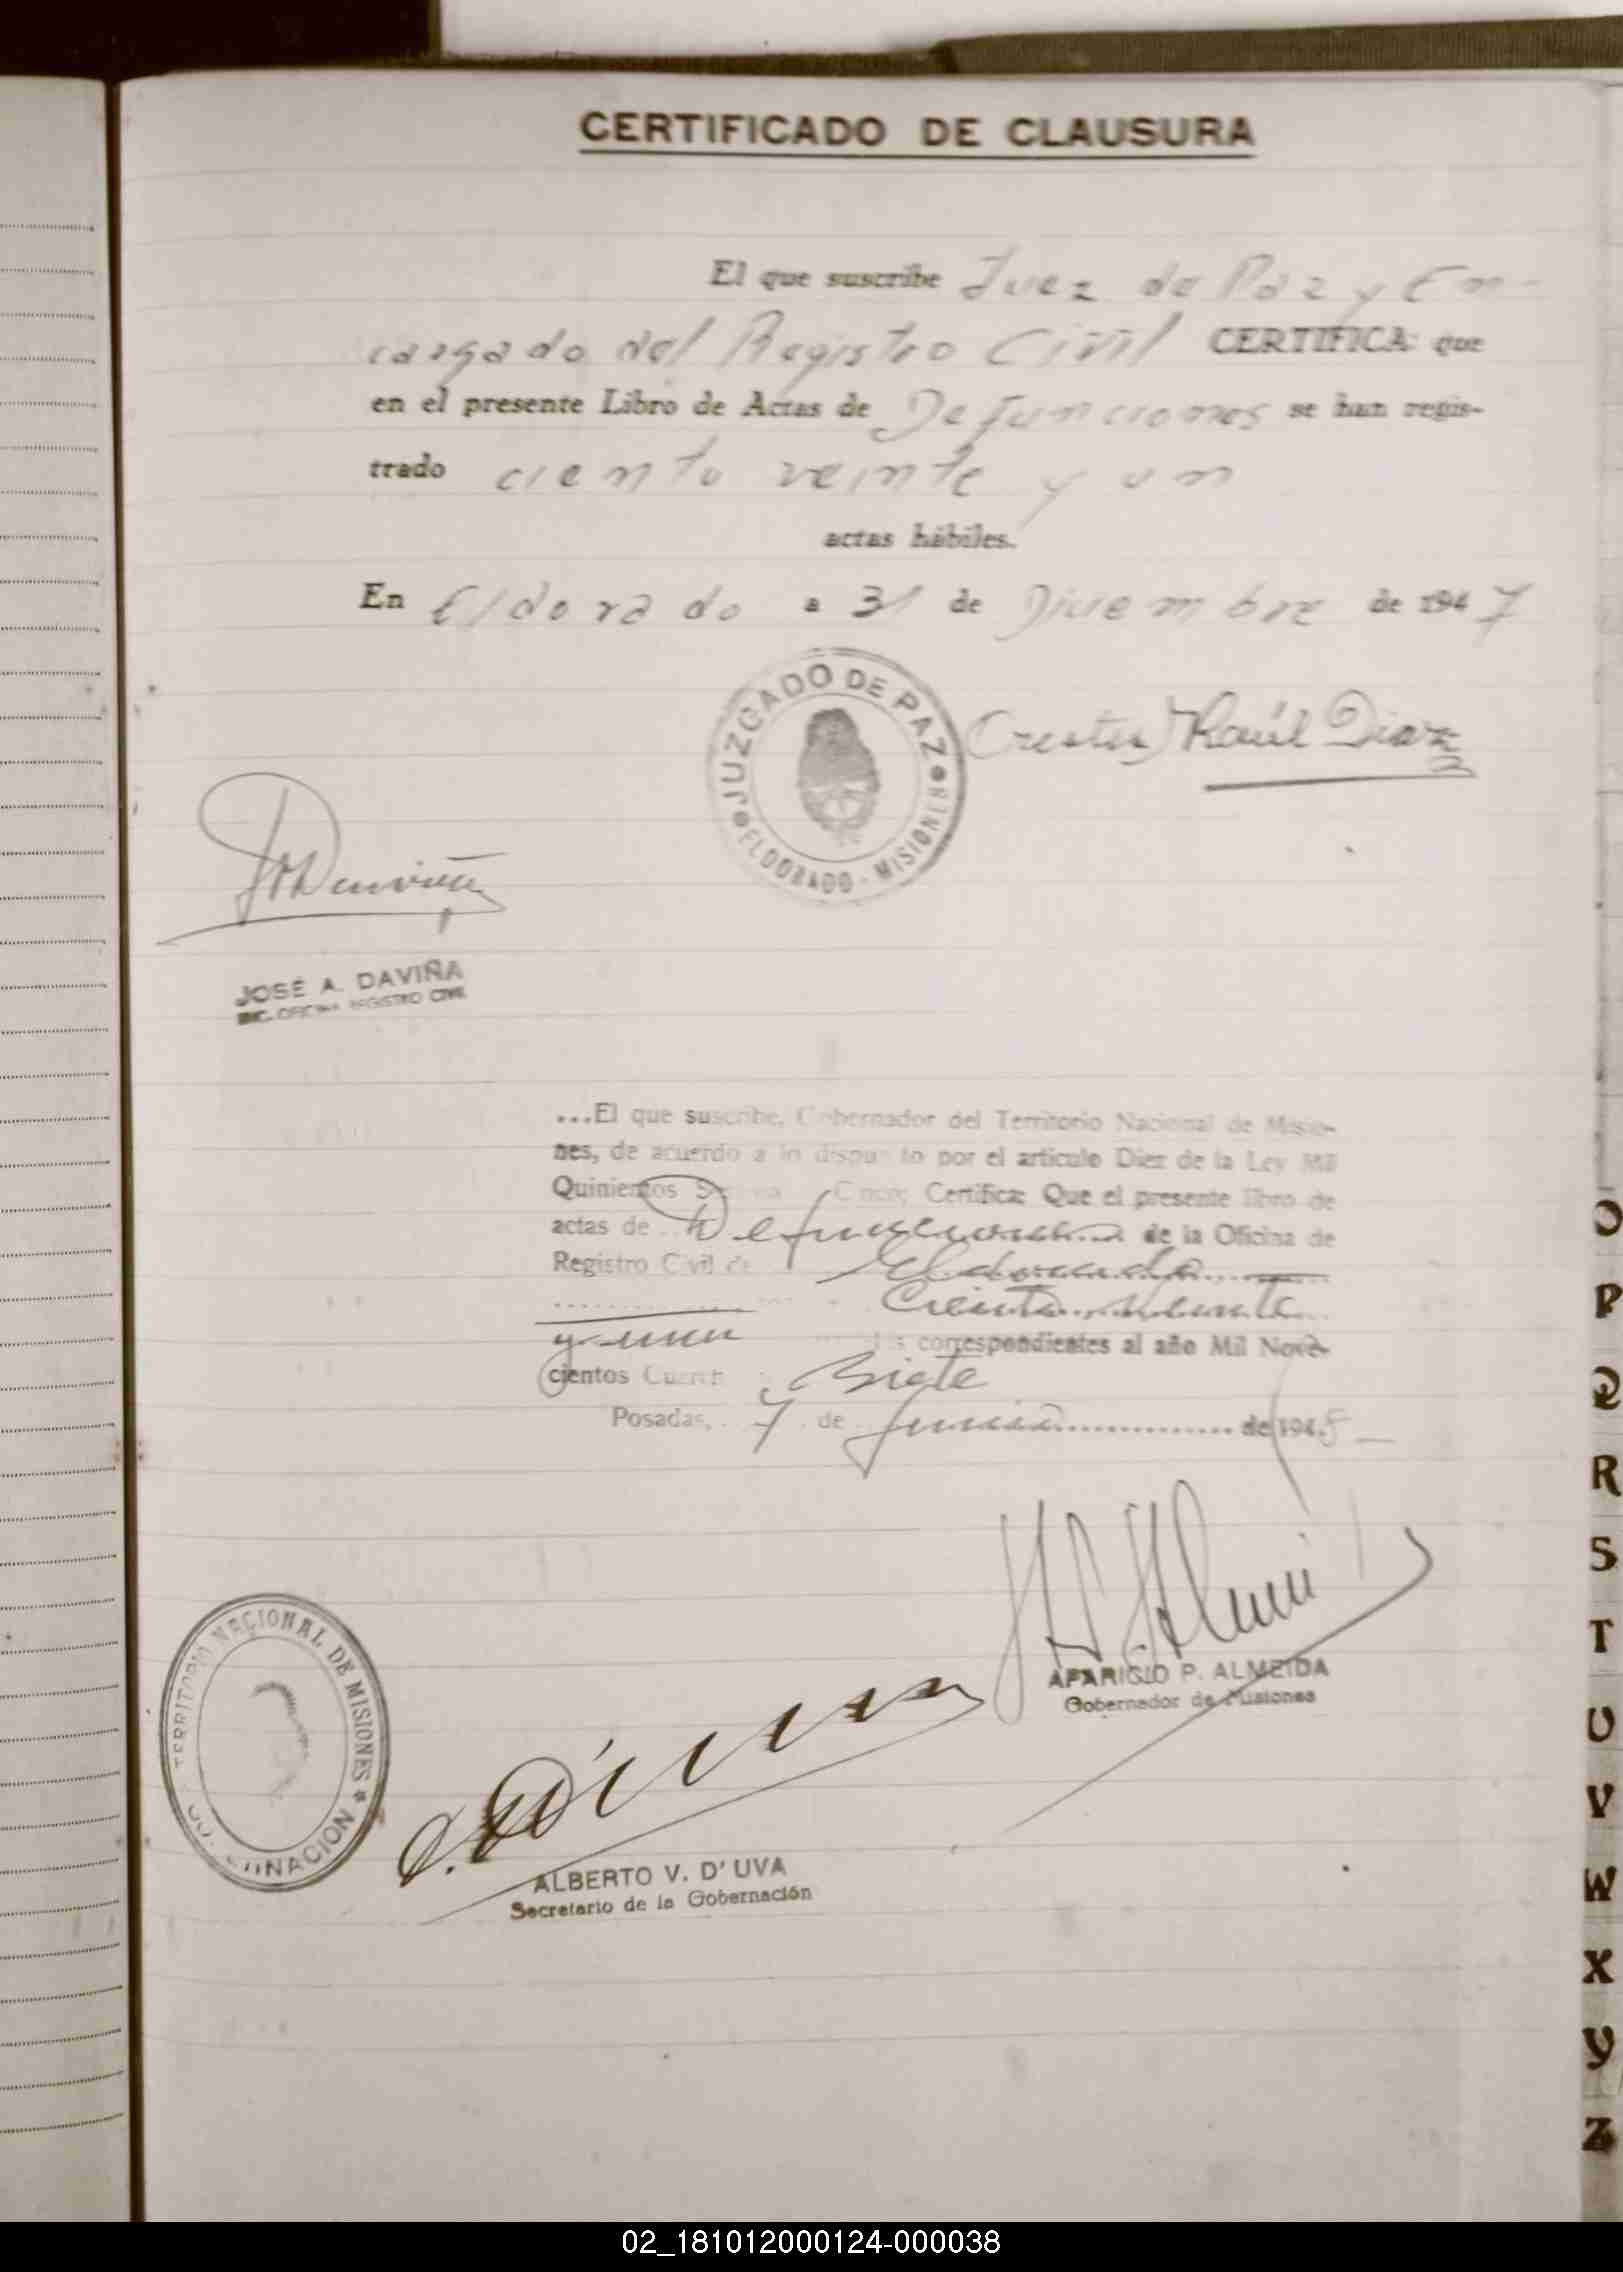 CERTIFICADO DE CLAUSURA
El que suscribe Juez de Paz y En-
cargado del Registro Civil CERTIFICA: que
en el presente Libro de Actas de Defunciones se han regis-
trado ciento veinte y un
actas hábiles.
En Eldorado a 31 de Diciembre de 1947
JUZGADO DE PAZ
ELDORADO - MISIONES
Raúl Diaz
JOSÉ A. DAVIÑA
ENC. OFICINA REGISTRO CIVIL
...El que suscribe, Gobernador del Territorio Nacional de Misio-
nes, de acuerdo a lo dispuesto por el artículo Diez de la Ley Mil
Quinientos Cinco; Certifica: Que el presente libro de
actas de Defunciones de la Oficina de
Registro Civil de Eldorado
Ciento veinte
y un correspondientes al año Mil Nove-
cientos Cuarenta y Siete
Posadas, 7 de Junio de 1948
TERRITORIO NACIONAL DE MISIONES
GOBERNACION
APARICIO P. ALMEIDA
Gobernador de Misiones
ALBERTO V. D'UVA
Secretario de la Gobernación
O
P
Q
R
S
T
U
V
W
X
Y
Z
02_181012000124-000038